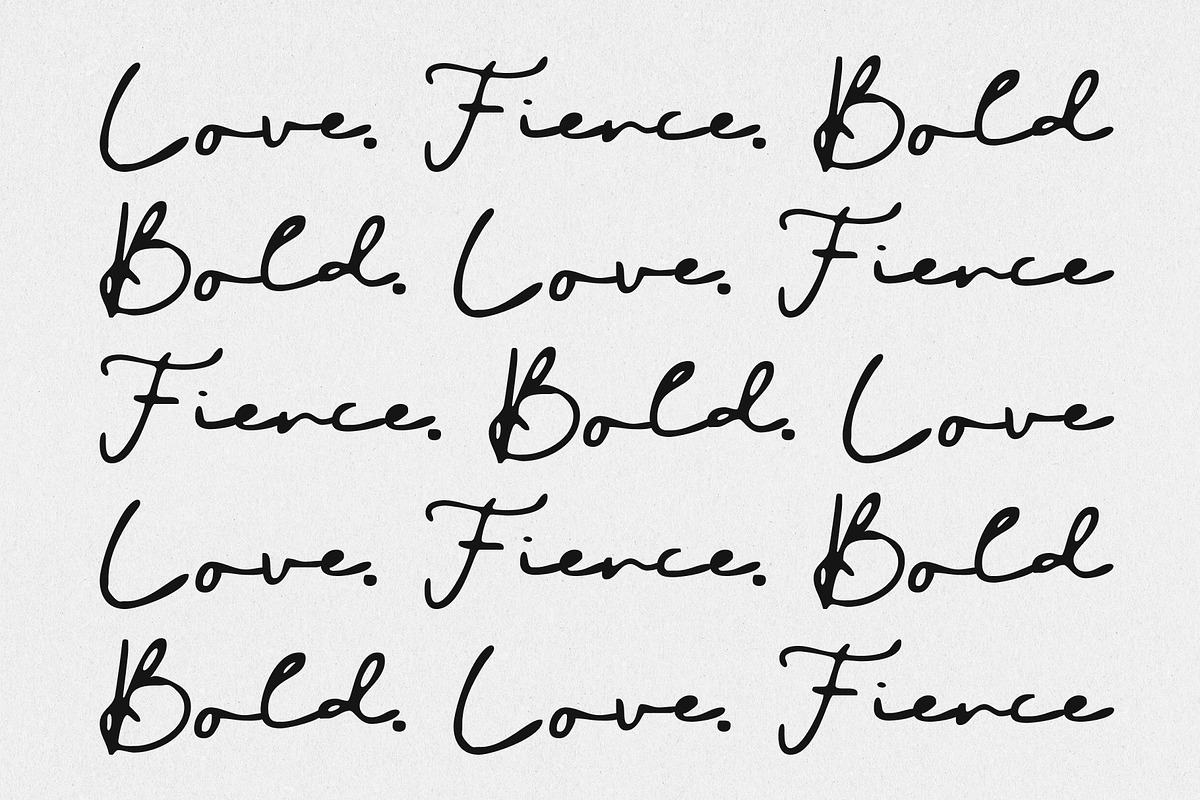 Love. Fierce. Bold
Bold. Love. Fierce
Fierce. Bold. Love
Love. Fierce. Bold
Bold. Love. Fierce